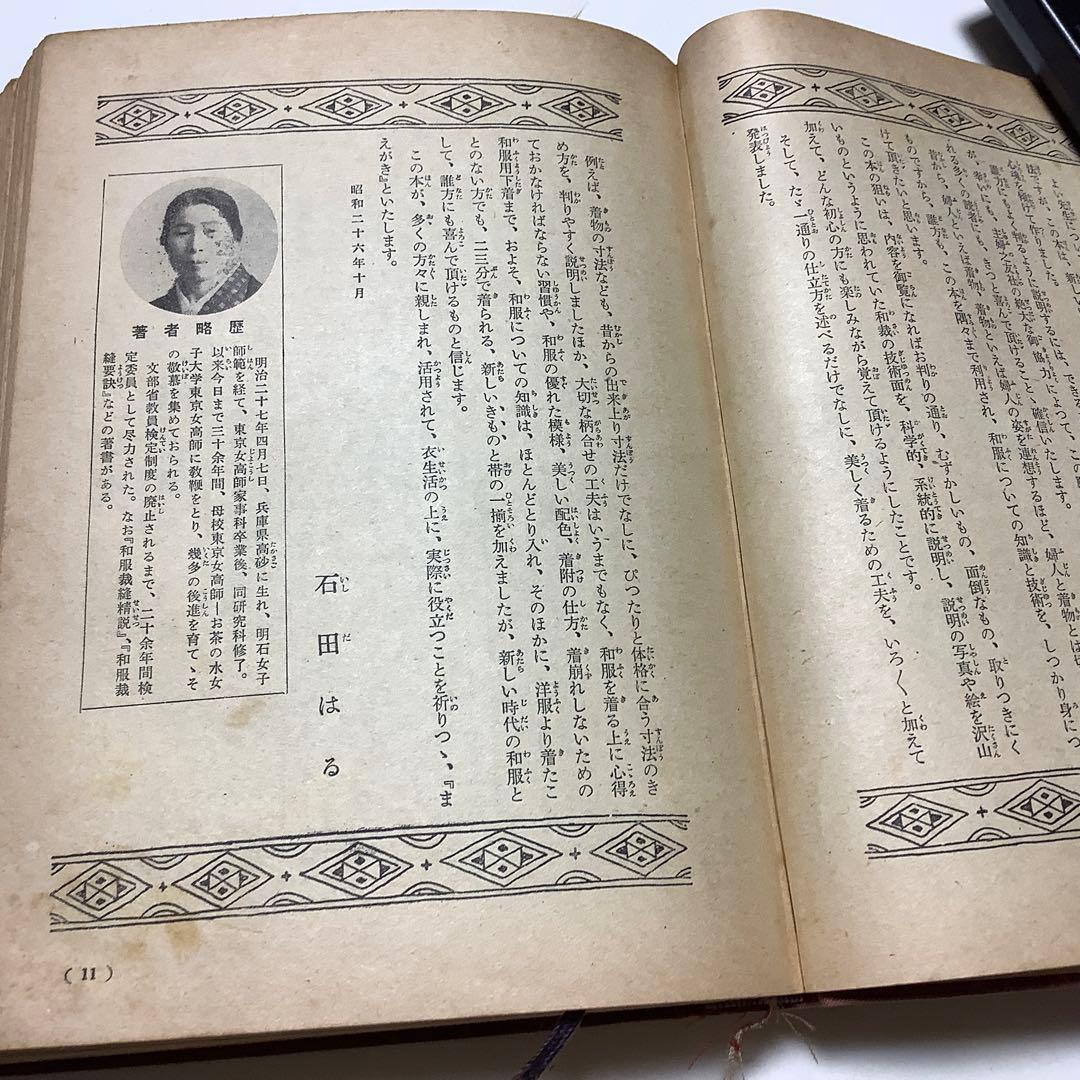 法ですが、この本は、新し
心魂を傾けて作りました。
誰方にもよく判るように説明するには、できるだけ
が、幸いにも、主婦之友社の絶大な御協力によつて、この
れる多くの読者にも、きつと喜んで頂けることゝ確信いたします。
昔から、婦人といえば着物、着物といえば婦人の姿を連想するほど、婦人と着物とは切
ものですから、誰方も、この本を隅々まで利用され、和服についての知識と技術を、しつかり身につ
けて頂きたいと思います。
この本の狙いは、内容を御覧になればお判りの通り、むずかしいもの、面倒なもの、取りつきにく
いものというように思われていた和裁の技術面を、科学的、系統的に説明し、説明の写真や絵を沢山
加えて、どんな初心の方にも楽しみながら覚えて頂けるようにしたことです。
そして、たゞ一通りの仕立方を述べるだけでなしに、美しく着るための工夫を、いろ〱と加えて
発表しました。
例えば、着物の寸法なども、昔からの出来上り寸法だけでなしに、ぴつたりと体格に合う寸法のき
め方を、判りやすく説明しましたほか、大切な柄合せの工夫はいうまでもなく、和服を着る上に心得
ておかなければならない習慣や、和服の優れた模様、美しい配色、着附の仕方、着崩れしないための
和服用下着まで、およそ、和服についての知識は、ほとんどとり入れ、そのほかに、洋服より着たこ
とのない方でも、二三分で着られる、新しいきものと帯の一揃を加えましたが、新しい時代の和服と
して、誰方にも喜んで頂けるものと信じます。
この本が、多くの方々に親しまれ、活用されて、衣生活の上に、実際に役立つことを祈りつゝ、『ま
えがき』といたします。
昭和二十六年十月
石田はる
著者略歴
明治二十七年四月七日、兵庫県高砂に生れ、明石女子
師範を経て、東京女高師家事科卒業後、同研究科修了。
以来今日まで三十余年間、母校東京女高師―お茶の水女
子大学東京女高師に教鞭をとり、幾多の後進を育てゝそ
の敬慕を集めておられる。
文部省教員検定制度の廃止されるまで、二十余年間検
定委員として尽力された。なお『和服裁縫精説』、『和服裁
縫要訣』などの著書がある。
( 11 )